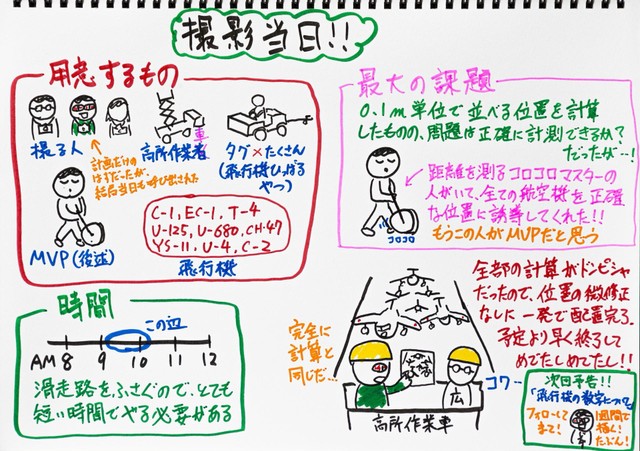 撮影当日!!
用意するもの
撮る人
計画だけの
はずだったが、
結局当日も呼び出された
高所作業者
車
タグ×たくさん
(飛行機ひっぱる
やつ)
MVP(後述)
C-1, EC-1, T-4
U-125, U-680, CH-47
YS-11, U-4, C-2
飛行機
最大の課題
0.1m単位で並べる位置を計算
したものの、問題は正確に計測できるか?
だったが…!
距離を測るコロコロマスターの
人がいて、全ての航空機を正確
な位置に誘導してくれた!!
もうこの人がMVPだと思う
コロコロ
時間
この辺
AM 8 9 10 11 12
滑走路をふさぐので、とても
短い時間でやる必要がある
完全に
計算と
同じだ…
コワー
広
高所作業車
全部の計算がドンピシャ
だったので、位置の微修正
なしに一発で配置完了。
予定より早く終了して
めでたしめでたし!!
次回予告!!
「飛行機の数字について」
フォローして
まて!
1週間で
描く!
たぶん!